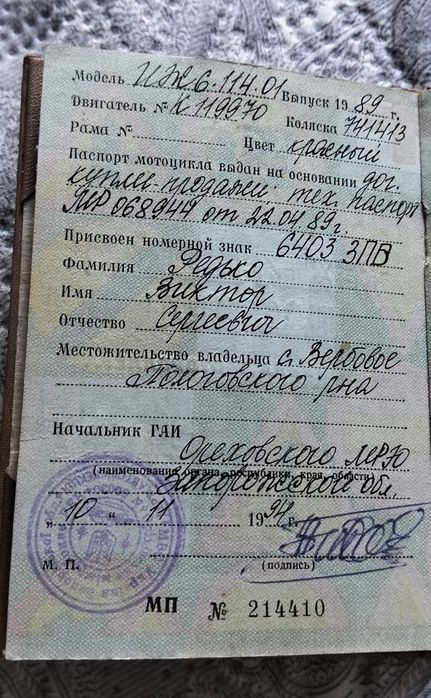 Модель ИЖ 6.114.01 Выпуск 1989 г.
Двигатель № К 119970 Коляска 741413
Рама № Цвет красный
Паспорт мотоцикла выдан на основании дог.
купли-продажи тех. паспорт
МР 068944 от 22.04.89г.
Присвоен номерной знак 6403 ЗПВ
Фамилия Редько
Имя Виктор
Отчество Сергеевич
Местожительство владельца с. Вербовое
Пологовского р-на
Начальник ГАИ
Ореховского МРЭО
(наименование органа республики, края, области)
Запорожской обл.
„ 10 “ 11 1994 г.
(подпись)
М. П.
МП № 214410